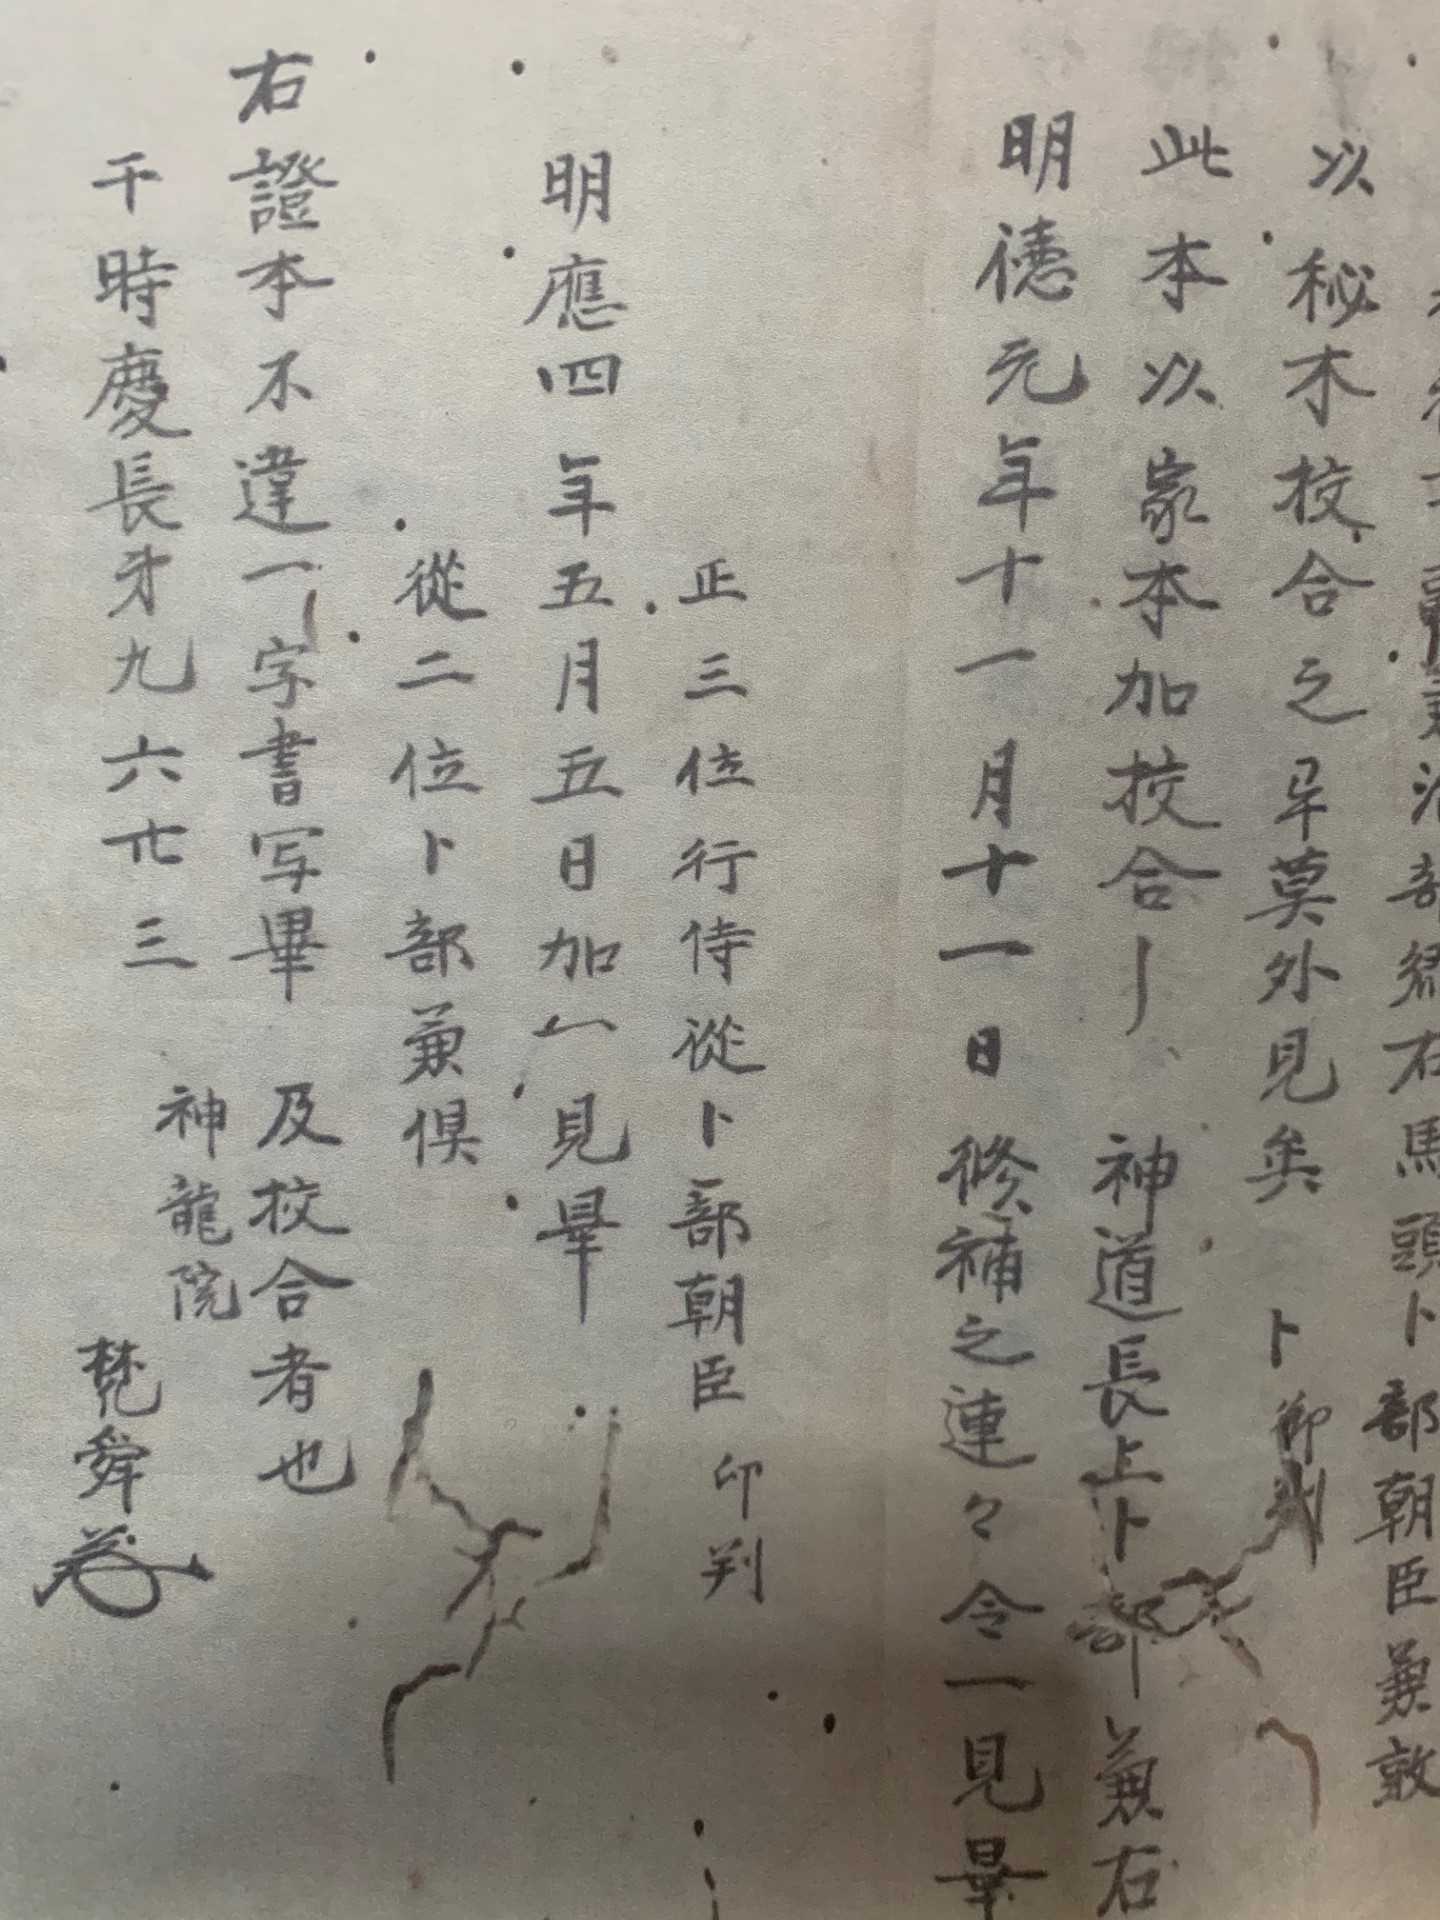 治部卿右馬頭卜部朝臣兼敦
以秘本校合之畢莫外見矣　卜御判
此本以家本加挍合｜　神道長上卜部兼右
明徳元年十一月十一日修補之連々令一見畢
正三位行侍從卜部朝臣　印判
明應四年五月五日加一見畢
從二位卜部兼倶
右證本不違一字書写畢　及挍合者也
于時慶長才九六廿三
神龍院
梵舜